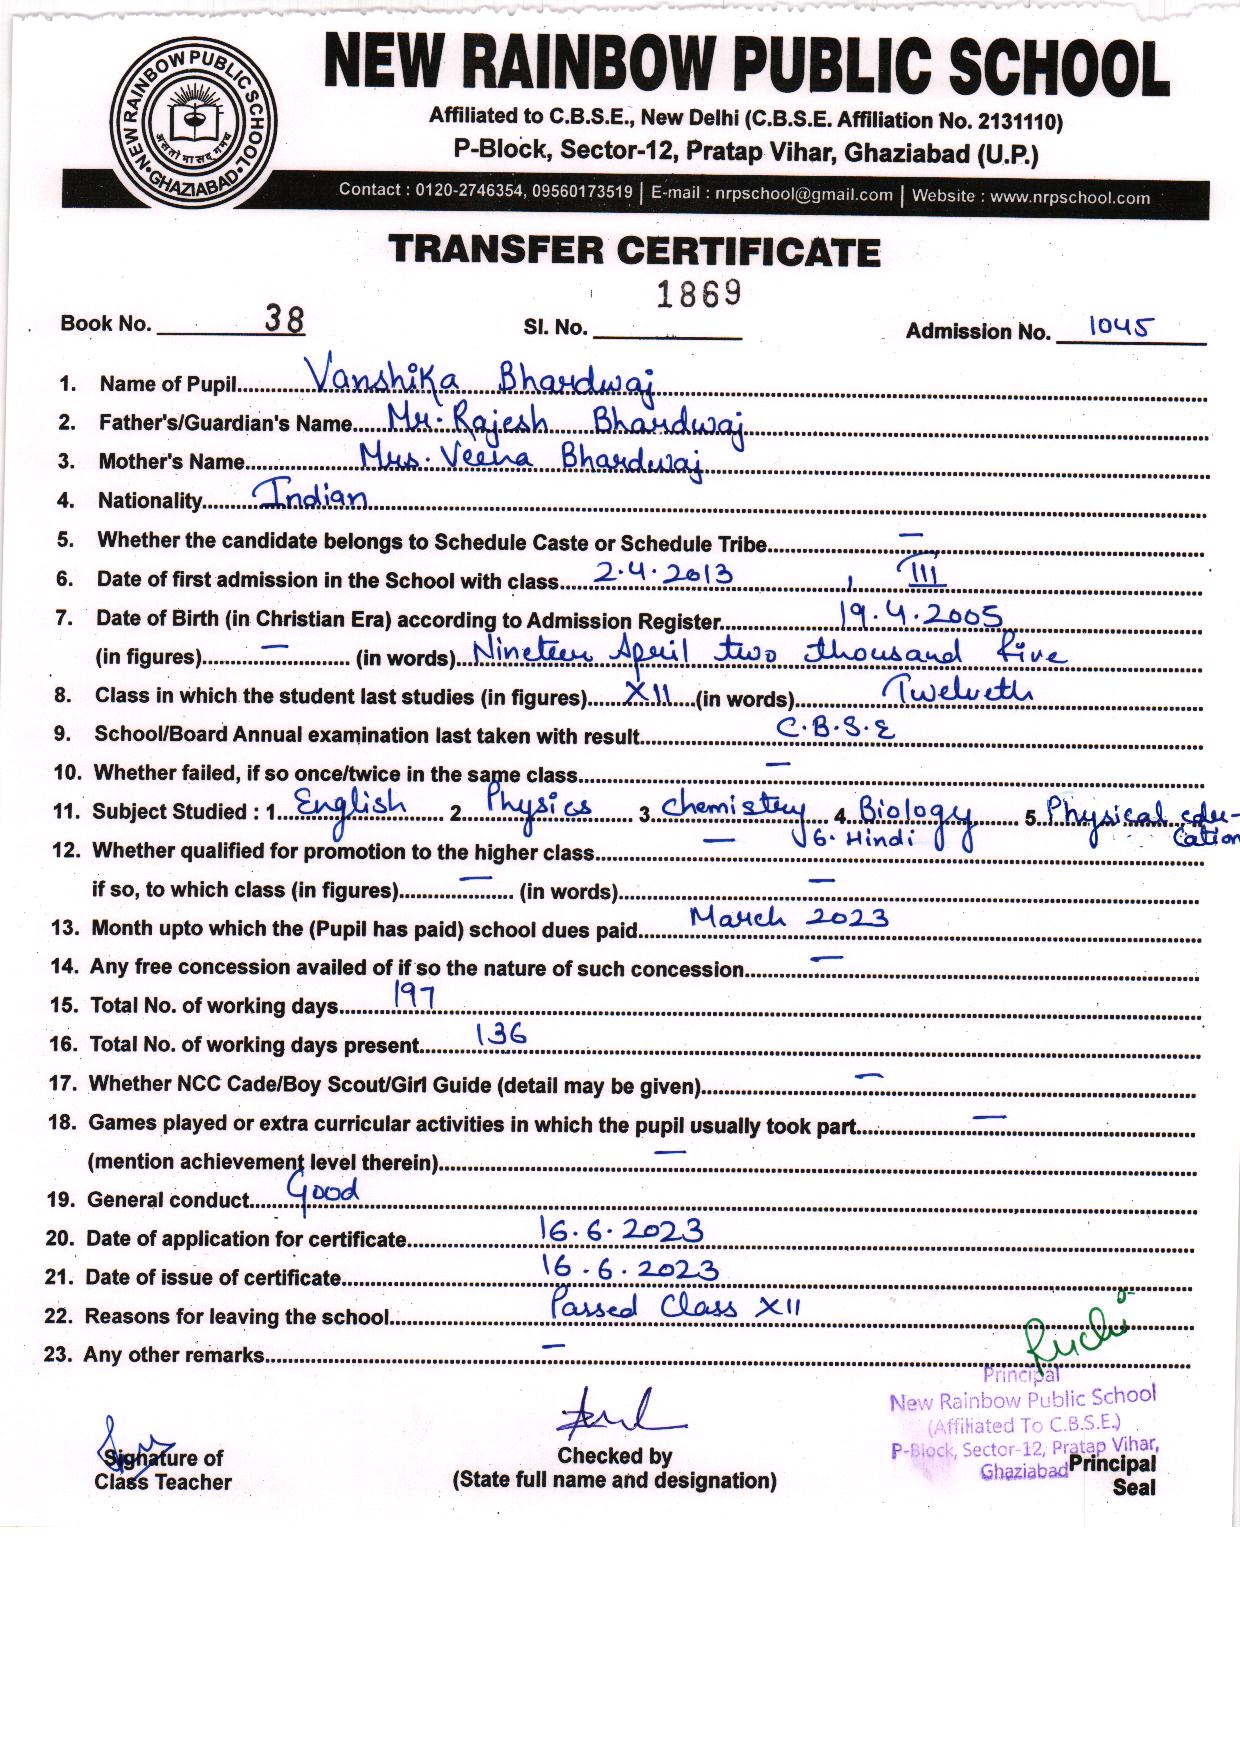 NEW RAINBOW PUBLIC SCHOOL
Affiliated to C.B.S.E., New Delhi (C.B.S.E. Affiliation No. 2131110)
P-Block, Sector-12, Pratap Vihar, Ghaziabad (U.P.)
NEW RAINBOW PUBLIC SCHOOL
असतो मा सद् गमय
•GHAZIABAD•
Contact : 0120-2746354, 09560173519 | E-mail : nrpschool@gmail.com | Website : www.nrpschool.com
TRANSFER CERTIFICATE
Book No. 38 Sl. No. 1869 Admission No. 1045
1. Name of Pupil Vanshika Bhardwaj
2. Father's/Guardian's Name Mr. Rajesh Bhardwaj
3. Mother's Name Mrs. Veena Bhardwaj
4. Nationality Indian
5. Whether the candidate belongs to Schedule Caste or Schedule Tribe —
6. Date of first admission in the School with class 2.4.2013, III
7. Date of Birth (in Christian Era) according to Admission Register 19.4.2005
(in figures) — (in words) Nineteen April two thousand five
8. Class in which the student last studies (in figures) XII (in words) Twelveth
9. School/Board Annual examination last taken with result C.B.S.E
10. Whether failed, if so once/twice in the same class —
11. Subject Studied : 1. English 2. Physics 3. Chemistry 4. Biology 5. Physical edu-
cation
6. Hindi
12. Whether qualified for promotion to the higher class —
if so, to which class (in figures) — (in words) —
13. Month upto which the (Pupil has paid) school dues paid March 2023
14. Any free concession availed of if so the nature of such concession —
15. Total No. of working days 197
16. Total No. of working days present 136
17. Whether NCC Cade/Boy Scout/Girl Guide (detail may be given) —
18. Games played or extra curricular activities in which the pupil usually took part —
(mention achievement level therein) —
19. General conduct Good
20. Date of application for certificate 16.6.2023
21. Date of issue of certificate 16.6.2023
22. Reasons for leaving the school Passed Class XII
23. Any other remarks —
Ruchi
Principal
New Rainbow Public School
(Affiliated To C.B.S.E.)
P-Block, Sector-12, Pratap Vihar,
Ghaziabad
Signature of
Class Teacher
Checked by
(State full name and designation)
Principal
Seal